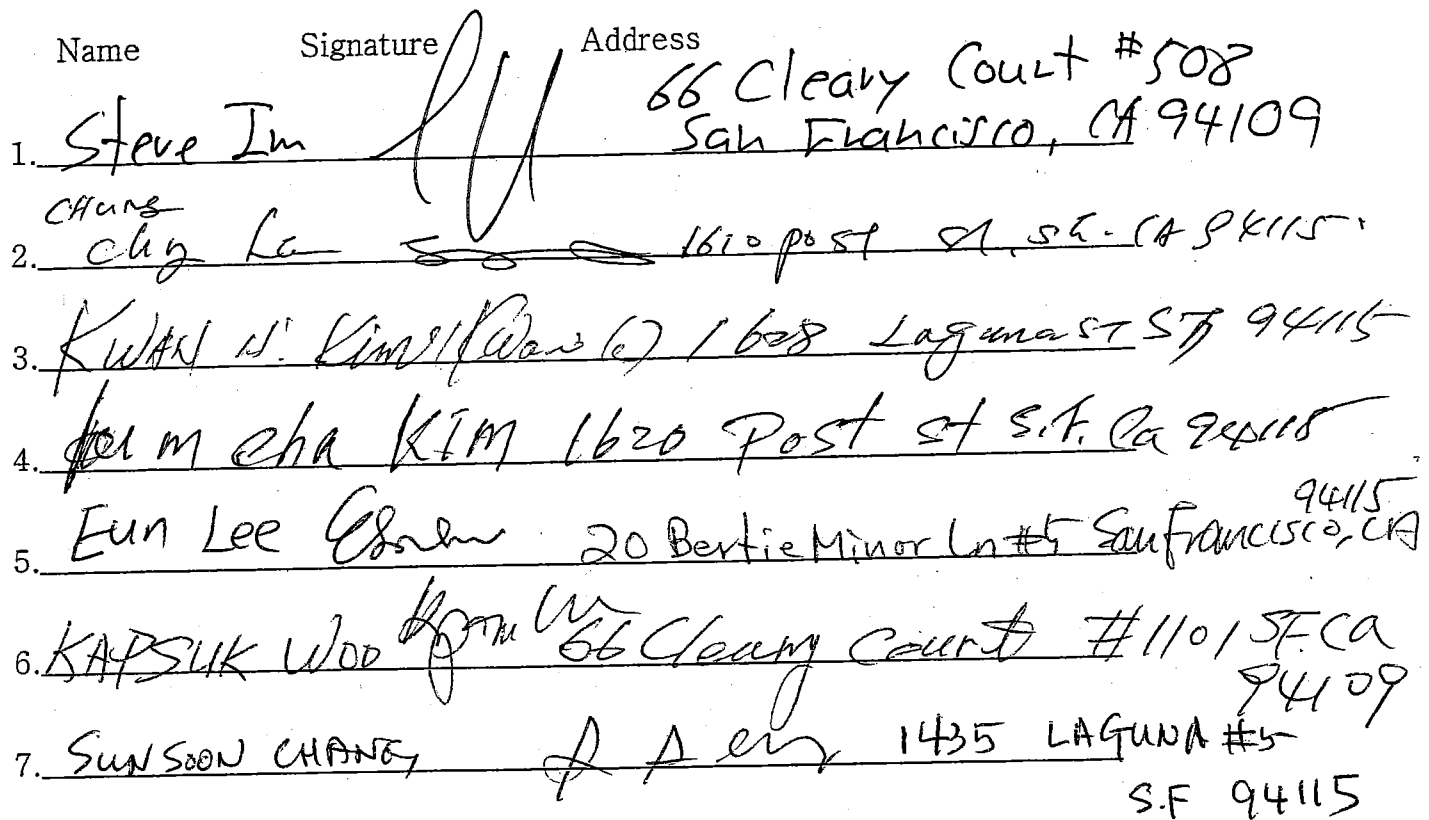 Name Signature Address
66 Cleary Court #508
1. Steve Im San Francisco, CA 94109
CHUNG
2. 1610 post st, CA 94115
3. KWAN N. Kim 1628 Laguna ST SF 94115
4. cha KIM 1620 Post st S.F. Ca 94115
94115
5. Eun Lee 20 Bertie Minor Ln #5 San Francisco, CA
6. KAPSUK WOO 66 Cleary Court #1101 SF. CA
94109
7. SUNSOON CHANG 1435 LAGUNA #5
S.F 94115